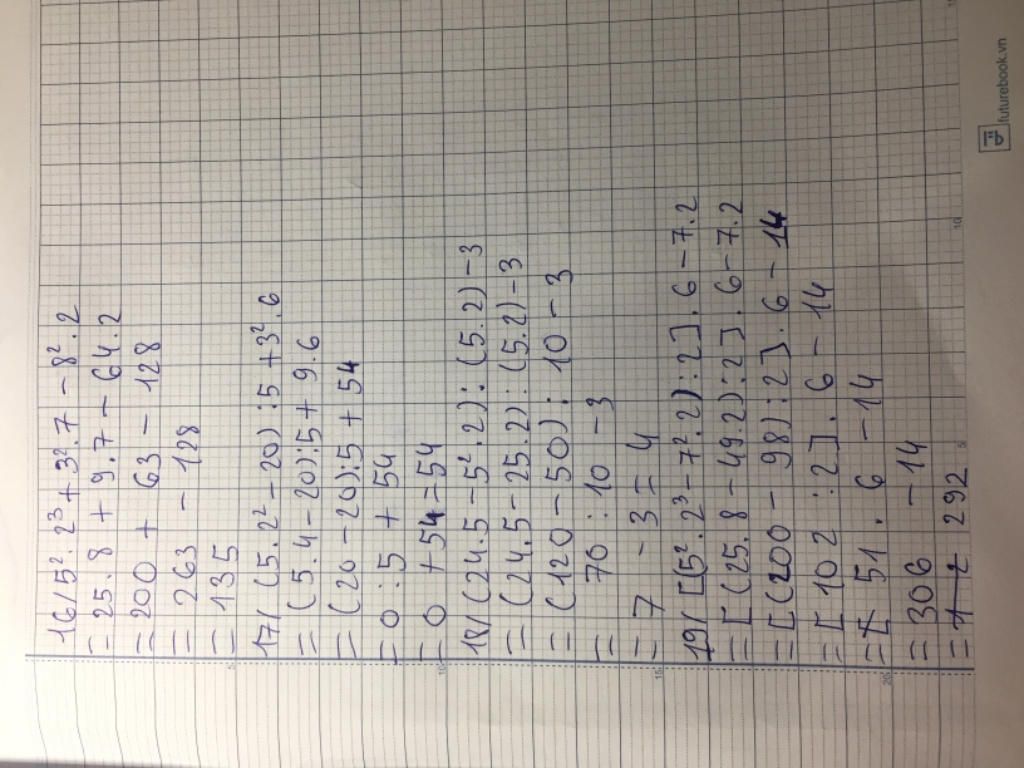 16/ 5². 2³ + 3². 7 - 8². 2
= 25. 8 + 9. 7 - 64. 2
= 200 + 63 - 128
= 263 - 128
= 135
17/ (5. 2² - 20) : 5 + 3². 6
= (5. 4 - 20) : 5 + 9. 6
= (20 - 20) : 5 + 54
= 0 : 5 + 54
= 0 + 54 = 54
18/ (24. 5 - 5². 2) : (5. 2) - 3
= (24. 5 - 25. 2) : (5. 2) - 3
= (120 - 50) : 10 - 3
= 70 : 10 - 3
= 7 - 3 = 4
19/ [(5². 2³ - 7². 2) : 2]. 6 - 7. 2
= [(25. 8 - 49. 2) : 2]. 6 - 7. 2
= [(200 - 98) : 2]. 6 - 14
= [102 : 2]. 6 - 14
= 51. 6 - 14
= 306 - 14
= 292
5
10
15
20
5
10
futurebook.vn